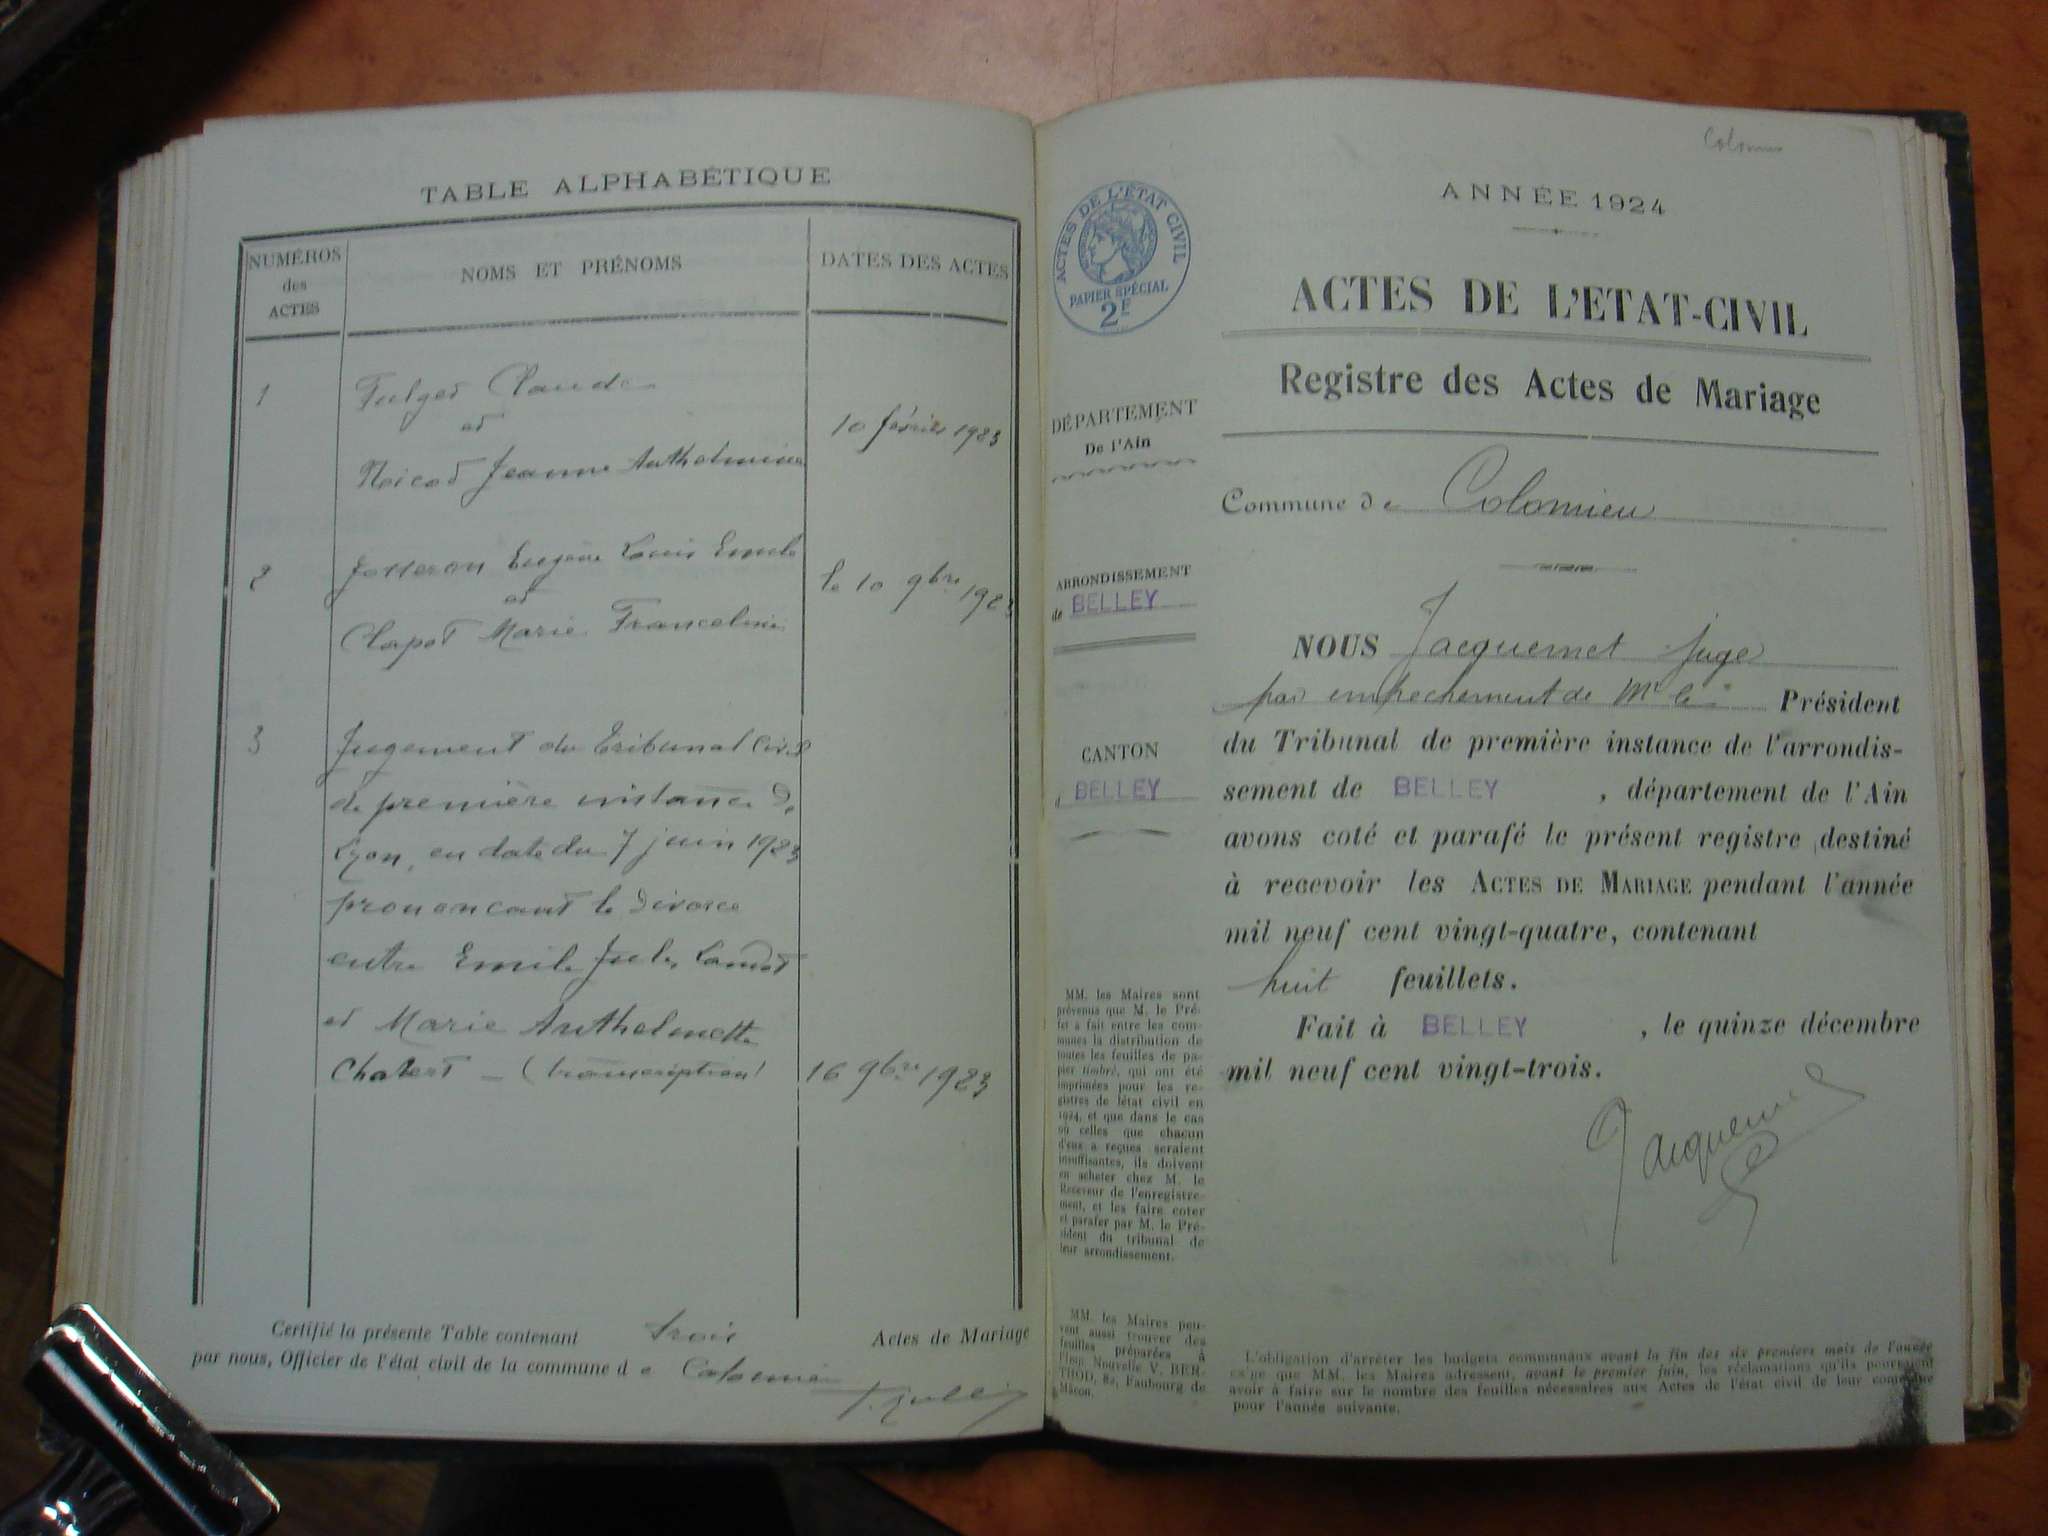 TABLE ALPHABÉTIQUE
NUMÉROS
des
ACTES
NOMS ET PRÉNOMS
DATES DES ACTES
1
Claude
et
Jeanne Anthelmine
10 février 1923
2
Josseron Eugène Louis Emile
et
Clapot Marie Franceline
le 10 9bre 1923
3
Jugement du Tribunal Civil
de première instance de
Lyon, en date du 7 juin 1923
prononcant le divorce
entre Emile Jules
et Marie Anthelmette
Chabert - (transcription)
16 9bre 1923
Certifié la présente Table contenant trois Actes de Mariage
par nous, Officier de l'état civil de la commune de Colomieu
Colomieu
ANNÉE 1924
ACTES DE L'ÉTAT CIVIL
PAPIER SPÉCIAL
2F
ACTES DE L'ETAT-CIVIL
Registre des Actes de Mariage
DÉPARTEMENT
De l'Ain
Commune de Colomieu
ARRONDISSEMENT
de BELLEY
CANTON
BELLEY
NOUS Jacquemet Juge
par empechement de Mr le Président
du Tribunal de première instance de l'arrondis-
sement de BELLEY, département de l'Ain
avons coté et parafé le présent registre destiné
à recevoir les ACTES DE MARIAGE pendant l'année
mil neuf cent vingt-quatre, contenant
huit feuillets.
Fait à BELLEY, le quinze décembre
mil neuf cent vingt-trois.
Jacquemet
MM. les Maires sont
prévenus que M. le Pré-
fet a fait entre les com-
munes la distribution de
toutes les feuilles de pa-
pier timbré, qui ont été
imprimées pour les re-
gistres de létat civil en
1924, et que dans le cas
où celles que chacun
d'eux a reçues seraient
insuffisantes, ils doivent
en acheter chez M. le
Receveur de l'enregistre-
ment, et les faire coter
et parafer par M. le Pré-
sident du tribunal de
leur arrondissement.
MM. les Maires peu-
vent aussi trouver des
feuilles préparées à
l'Imp. Nouvelle V. BER-
THOD, 82, Faubourg de
Mâcon.
L'obligation d'arrêter les budgets communaux avant la fin des six premiers mois de l'année
exige que MM. les Maires adressent, avant le premier juin, les réclamations qu'ils pourraient
avoir à faire sur le nombre des feuilles nécessaires aux Actes de l'état civil de leur commune
pour l'année suivante.